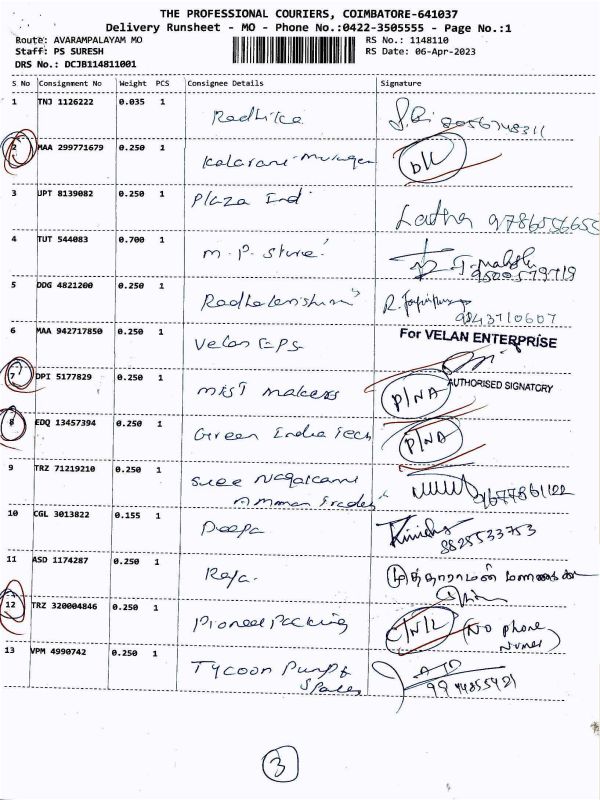 THE PROFESSIONAL COURIERS, COIMBATORE-641037
Delivery Runsheet - MO - Phone No.:0422-3505555 - Page No.:1
Route: AVARAMPALAYAM MO
RS No.: 1148110
Staff: PS SURESH
RS Date: 06-Apr-2023
DRS No.: DCJB114811001
S No Consignment No Weight PCS Consignee Details Signature
1 TNJ 1126222 0.035 1 Radhika
2 MAA 299771679 0.250 1 D/L
3 UPT 8139082 0.250 1 Plaza Ind Latha 9786556655
4 TUT 544083 0.700 1 M.P. Store
9500579719
5 DDG 4821200 0.250 1 Radhakrishnan
9843710607
6 MAA 942717850 0.250 1 Velan EPS For VELAN ENTERPRISE
AUTHORISED SIGNATORY
7 DPI 5177829 0.250 1 Mist Makers P/NA
8 EDQ 13457394 0.250 1 Green India Tech P/NA
9 TRZ 71219210 0.250 1 Sree Nagakanni
Amman Traders 9677861122
10 CGL 3013822 0.155 1 Deepa
8825533753
11 ASD 1174287 0.250 1 Raja.
12 TRZ 320004846 0.250 1 Pioneer Packing C/N/L (No phone
Numer)
13 VPM 4990742 0.250 1 Tycoon Pump &
Spares
3